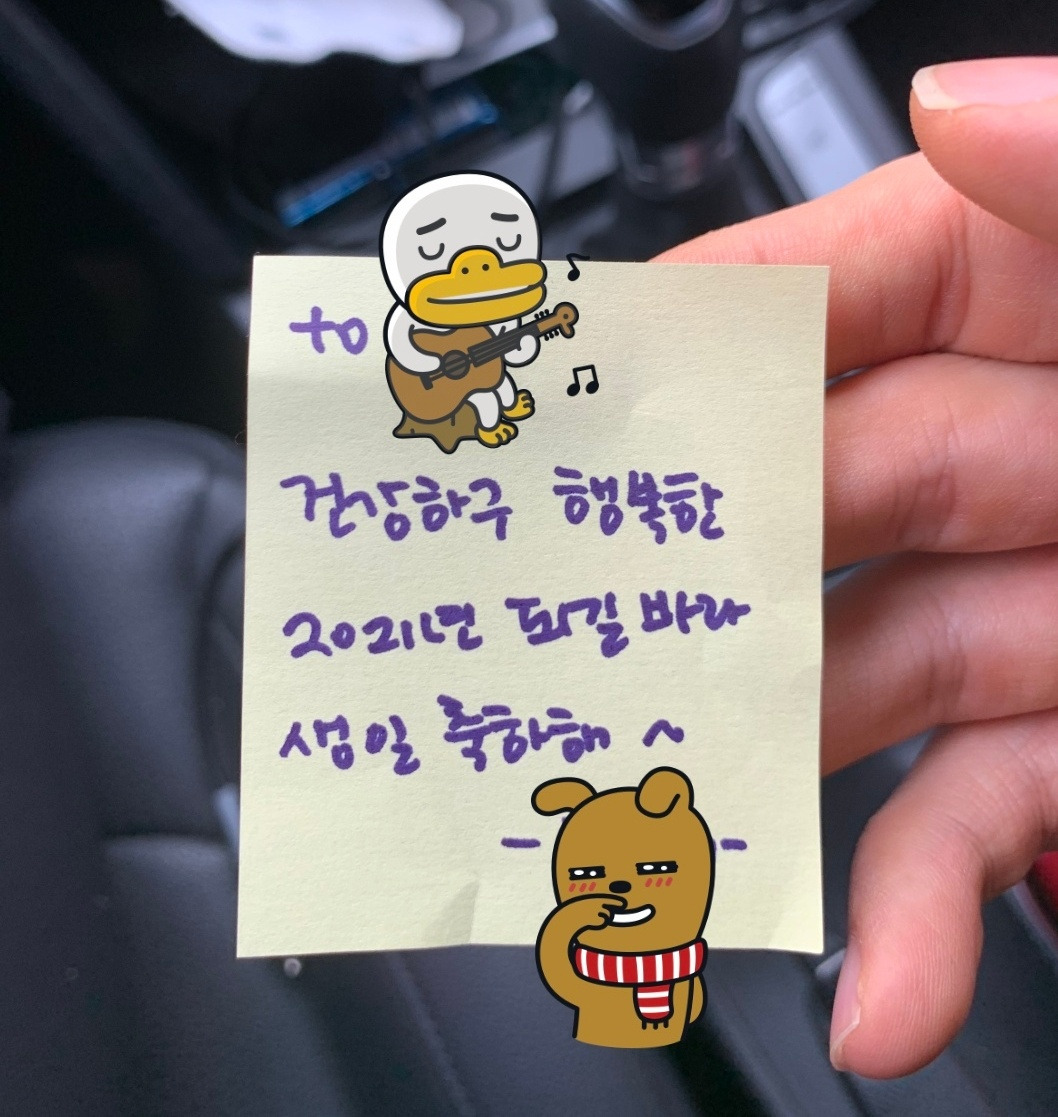 to
건강하구 행복한
2021년 되길 바라
생일 축하해 ~
- -